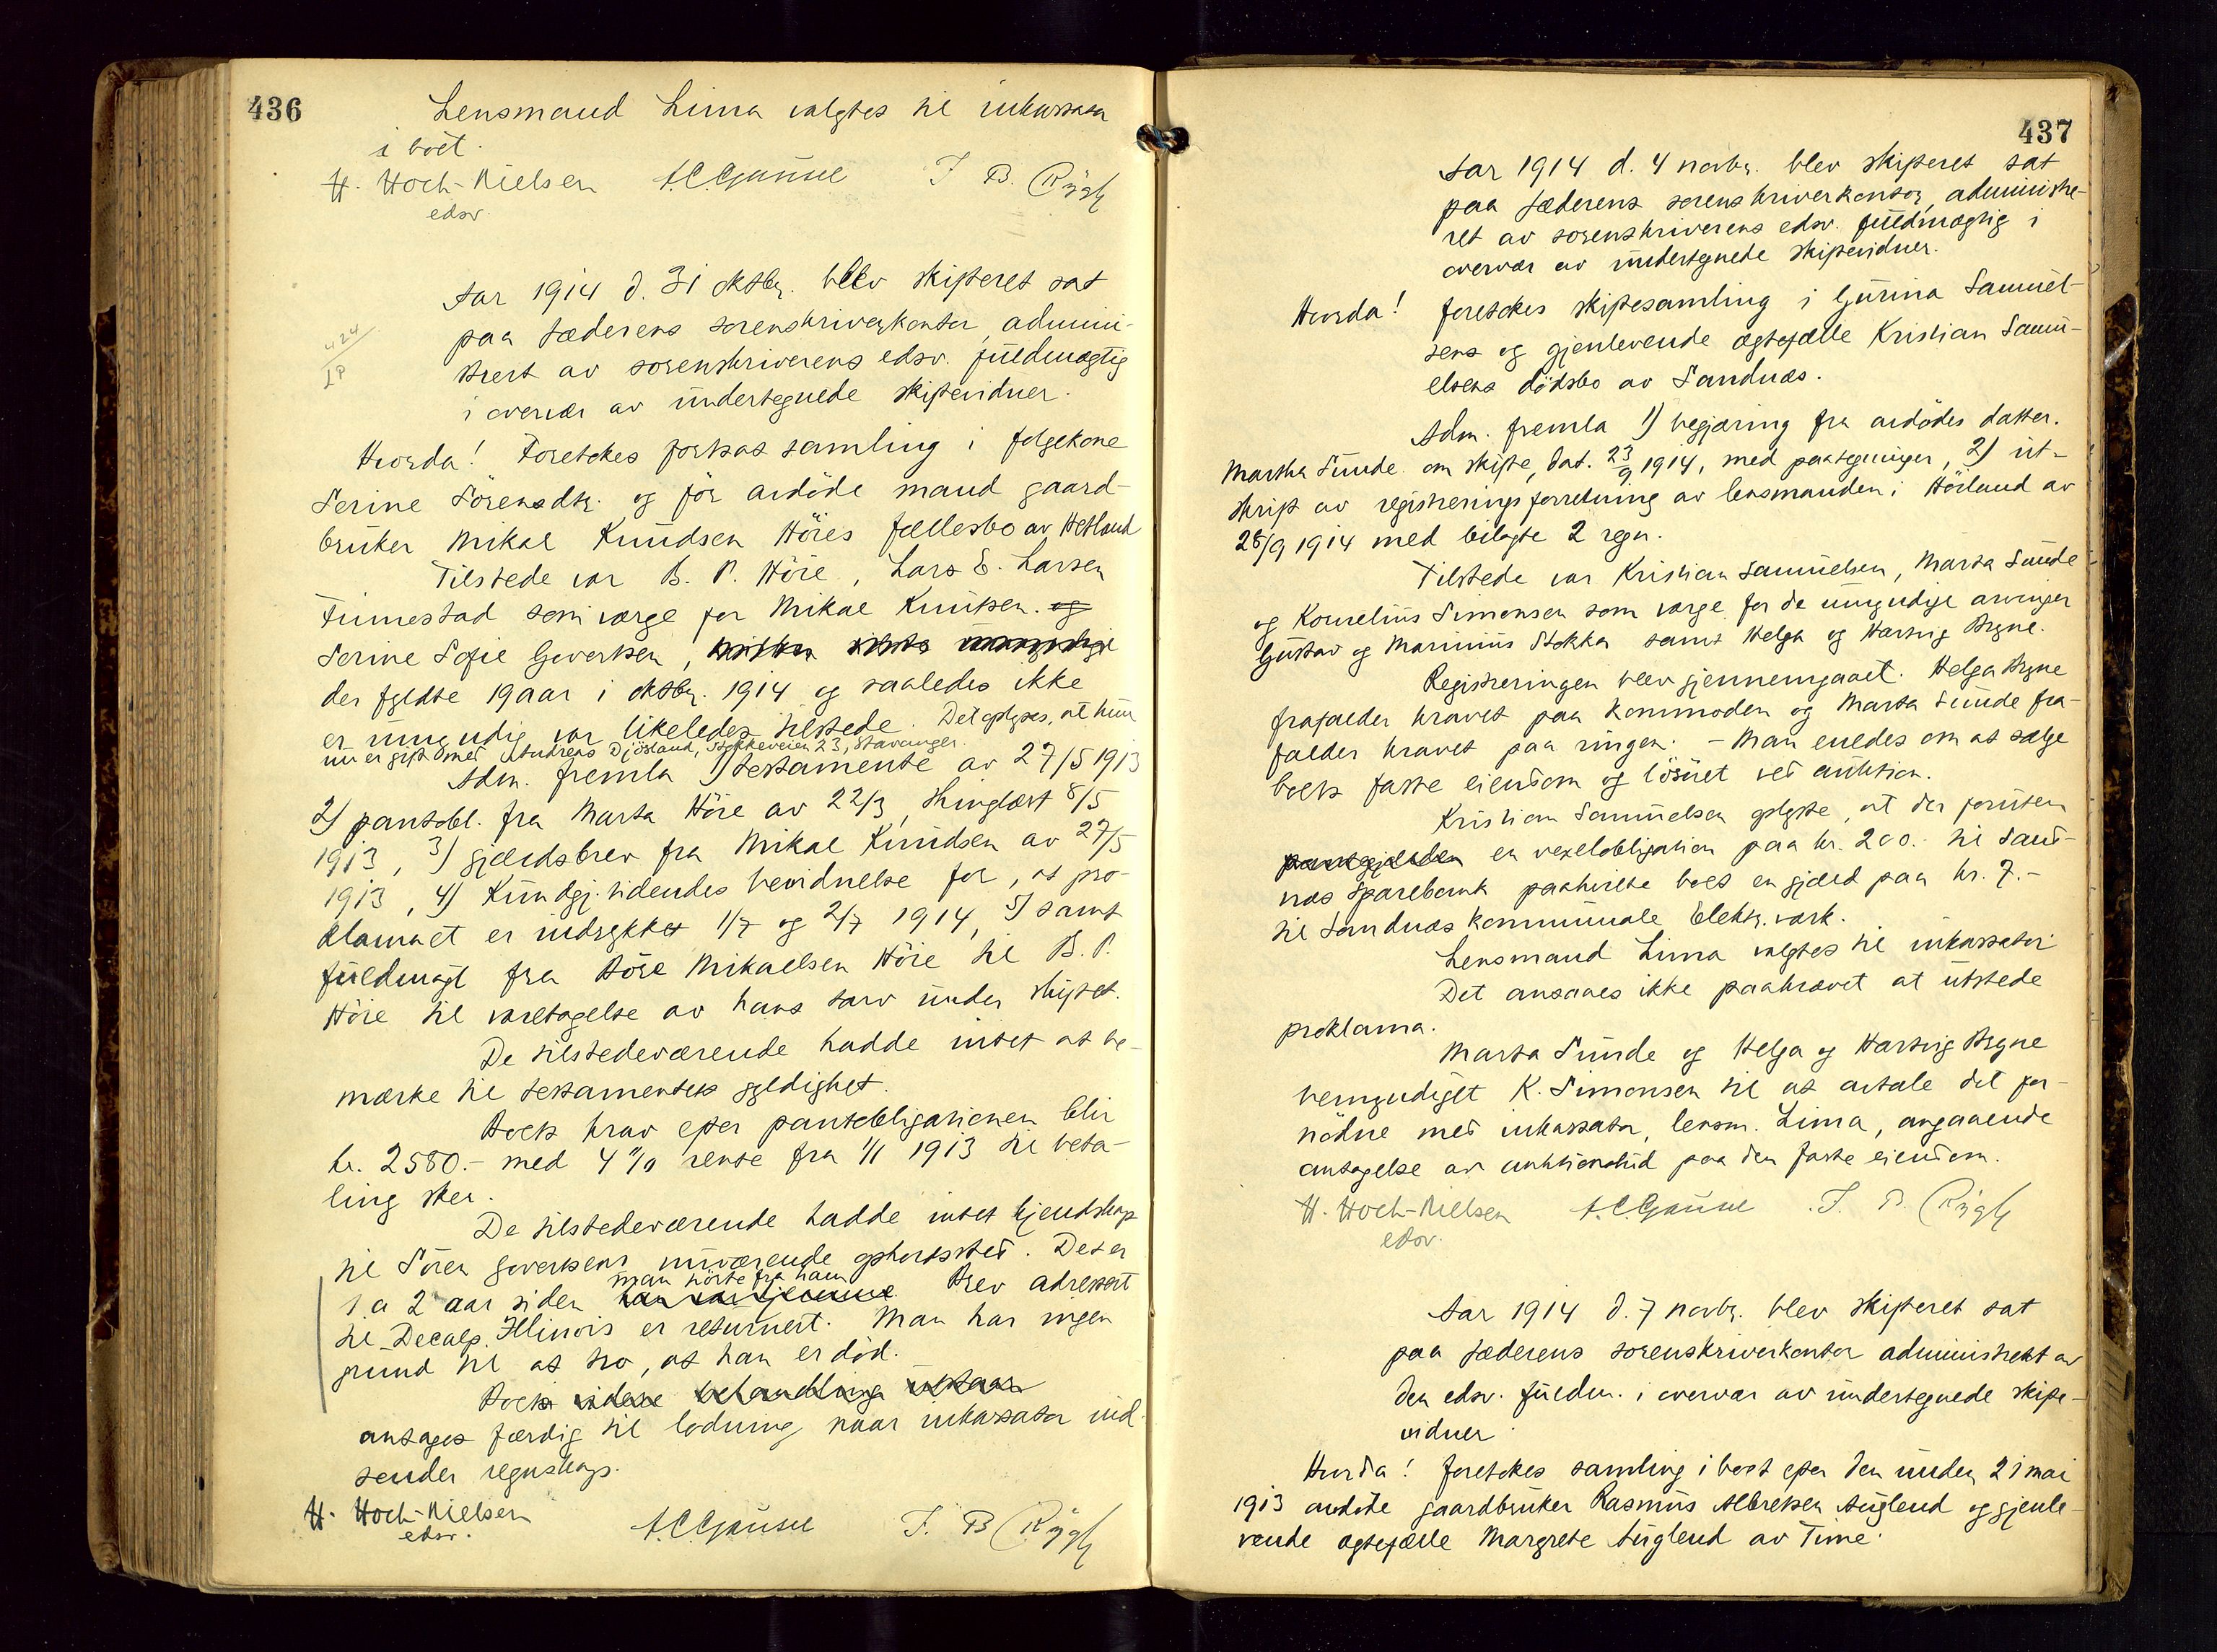 436
Lensmand Lima valgtes til inkassator
i boet.
H. Hoch-Nielsen A.C. Gausel T. B. Rygh
edsv.
Aar 1914 d. 31 oktbr. blev skifteret sat
paa Jæderens sorenskriverkontor, admini-
strert av sorenskriverens edsv. fuldmægtig
i overvær av undertegnede skiftevidner.
Hvorda! Foretokes fortsat samling i føl­gekone
Serine Sörensdtr. og för avdöde mand gaard-
bruker Mikal Knudsen Höies fællesbo av Hetland
Tilstede var B. P. Höie, Lars E. Larsen
Finnestad som værge for Mikal Knutsen. og
Serine Sofie Govertsen,
der fyldte 19 aar i oktbr. 1914 og saaledes ikke
er umyndig var likeledes tilstede. Det oplyses, at hun
nu er gift med Andreas Djösland, Stokkeveien 23, Stavanger.
Adm. fremla 1) testamente av 27/5 1913
2) pantobl. fra Marta Höie av 22/3, thinglæst 8/5
1913, 3) gjældsbrev fra Mikal Knudsen av 27/5
1913, 4) Kundgj. tidendes bevidnelse for, at pro-
klamaet er indrykket 1/7 og 2/7 1914, 5) samt
fuldmagt fra Tore Mikaelsen Höie til B. P.
Höie til varetagelse av hans tarv under skiftet.
De tilstedeværende hadde intet at be-
mærke til testamentets gyldighet.
Boets krav efter pantobligationen blir
kr. 2580.- med 4 % rente fra 1/1 1913 til beta-
ling sker.
De tilstedeværende hadde intet kjendskap
til Sören Govertsens nuværende opholdssted. Det er
1 a 2 aar siden man hörte fra ham han var hjemme. Brev adressert
til Decalp. Illinois er returnert. Man har ingen
grund til at tro, at han er död.
Boets videre behandling utstaar
antages færdig til lodning, naar inkassator ind-
sender regnskap.
H. Hoch-Nielsen A.C. Gausel T. B. Rygh
edsv.
437
Aar 1914 d. 4 novbr. blev skifteret sat
paa Jæderens sorenskriverkontor, administre-
ret av sorenskriverens edsv. fuldmægtig i
overvær av undertegnede skiftevidner.
Hvorda! foretokes skiftesamling i Gurina Samuel-
sens og gjenlevende ægtefælle Kristian Samu-
elsens dödsbo av Sandnæs.
Adm. fremla 1) begjæring fra avdödes datter.
Martha Sunde om skifte, dat. 23/9 1914, med paategninger, 2) ut-
skrift av registreringsforretning av lensmanden i Höiland av
28/9 1914 med bilagte 2 regn.
Tilstede var Kristian Samuelsen, Marta Sunde
og Kornelius Simonsen som værge for de umyndige arvinger
Gustav og Marinius Stokka samt Helga og Hartvig Bryne.
Registreringen blev gjennemgaaet. Helga Bryne
frafalder kravet paa kommoden og Marta Sunde fra-
falder kravet paa ringen. - Man enedes om at sælge
boets faste eiendom og lösöret ved auktion.
Kristian Samuelsen oplyste, at der foruten
pantegjælden en vexelobligation paa kr. 200.- til Sand-
næs Sparebank paahvilte boet en gjæld paa kr. 7.-
til Sandnæs kommunale Elektr. værk.
Lensmand Lima valgtes til inkassator
Det ansaaes ikke paakrævet at utstede
proklama.
Marta Sunde og Helga og Hartvig Bryne
bemyndiget K. Simonsen til at avtale det for-
nödne med inkassator, lensm. Lima, angaaende
antagelse av auktionsbud paa den faste eiendom.
H. Hoch-Nielsen A.C. Gausel T. B. Rygh
edsv.
Aar 1914 d. 7 novbr. blev skifteret sat
paa Jæderens sorenskriverkontor administrert av
den edsv. fuldm. i overvær av undertegnede skifte-
vidner
Hvorda! foretokes samling i boet efter den under 21 mai
1913 avdöde gaardbruker Rasmus Albretsen Auglend og gjenle-
vende ægtefælle Margrete Auglend av Time.